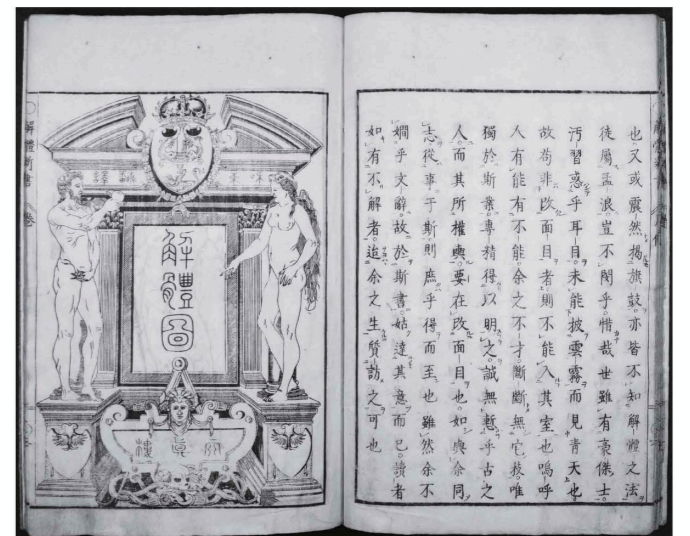 也又或震然揭旗鼓。亦皆不知解體之法
徒屬孟浪。豈不閔乎。惜哉世雖有豪傑士。
汚習惑乎耳目。未能披雲霧而見青天也
故苟非改面目者。則不能入其室也。嗚呼
人有能有不能余之不才斷斷無它技。唯
獨於斯業。專精得以明之。誠無慙乎古之
人。而其所權輿。要在改面目也。如與余同
志從事于斯。則庶乎得而至也。雖然余不
嫺乎文辭。故於斯書。姑達其意而已。讀者
如有不解者。迨余之生質訪之可也
翻譯
解體圖
天真樓
解體新書 卷